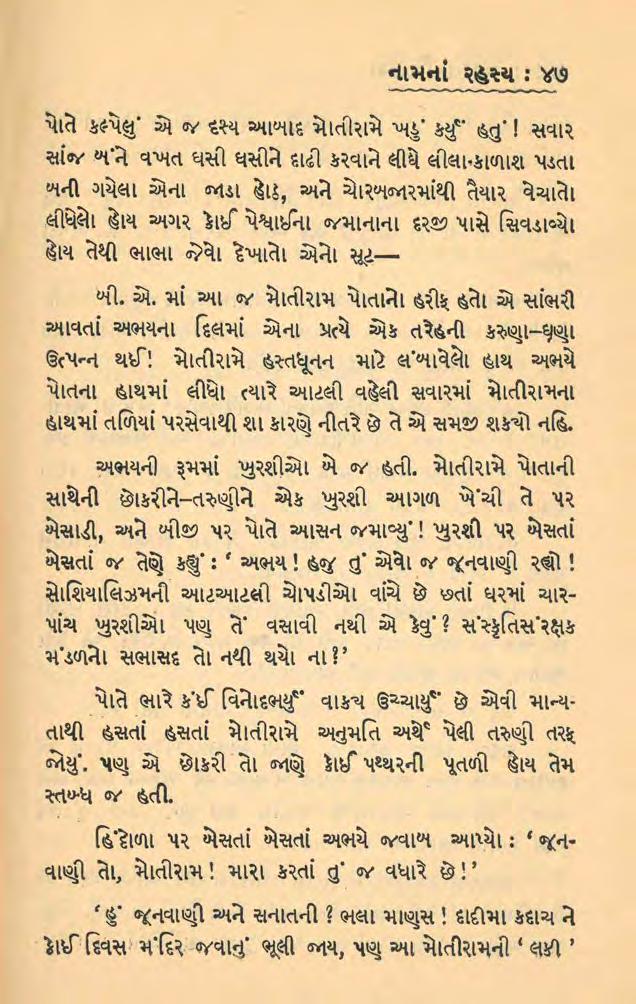 નામનાં રહસ્ય : ૪૭
પોતે કલ્પેલું એ જ દૃસ્ય આબાદ મોતીરામે ખડું કર્યું હતું ! સવાર
સાંજ બંને વખત ઘસી ઘસીને દાઢી કરવાને લીધે લીલા-કાળાશ પડતા
બની ગયેલા એના જાડા હોઠ, અને ચોરબજારમાંથી તૈયાર વેચાતો
લીધેલો હોય અગર કોઈ પેશ્વાઈના જમાનાના દરજી પાસે સિવડાવ્યો
હોય તેથી ભાભા જેવો દેખાતો એનો સૂટ—
બી. એ. માં આ જ મોતીરામ પોતાનો હરીફ હતો એ સાંભરી
આવતાં અભયના દિલમાં એના પ્રત્યે એક તરેહની કરુણા–ઘૃણા
ઉત્પન્ન થઈ! મોતીરામે હસ્તધૂનન માટે લંબાવેલો હાથ અભયે
પોતના હાથમાં લીધો ત્યારે આટલી વહેલી સવારમાં મોતીરામના
હાથમાં તળિયાં પરસેવાથી શા કારણે નીતરે છે તે એ સમજી શક્યો નહિ.
અભયની રૂમમાં ખુરશીઓ બે જ હતી. મોતીરામે પોતાની
સાથેની છોકરીને–તરુણીને એક ખુરશી આગળ ખેંચી તે પર
બેસાડી, અને બીજી પર પોતે આસન જમાવ્યું ! ખુરશી પર બેસતાં
બેસતાં જ તેણે કહ્યું : ‘ અભય ! હજુ તું એવો જ જૂનવાણી રહ્યો !
સોશિયાલિઝમની આટઆટલી ચોપડીઓ વાંચે છે છતાં ઘરમાં ચાર-
પાંચ ખુરશીઓ પણ તેં વસાવી નથી એ કેવું ? સંસ્કૃતિસંરક્ષક
મંડળનો સભાસદ તો નથી થયો ના ?’
પોતે ભારે કંઈ વિનોદભર્યું વાક્ય ઉચ્ચાર્યું છે એવી માન્ય-
તાથી હસતાં હસતાં મોતીરામે અનુમતિ અર્થે પેલી તરુણી તરફ
જોયું. પણ એ છોકરી તો જાણે કોઈ પથ્થરની પૂતળી હોય તેમ
સ્તબ્ધ જ હતી.
હિંદોળા પર બેસતાં બેસતાં અભયે જવાબ આપ્યો : ‘ જૂન-
વાણી તો, મોતીરામ ! મારા કરતાં તું જ વધારે છે !’
‘હું જૂનવાણી અને સનાતની ? ભલા માણુસ ! દાદીમા કદાચ ને
કોઈ દિવસ મંદિર જવાનું ભૂલી જાય, પણ આ મોતીરામની ‘ લકી ’